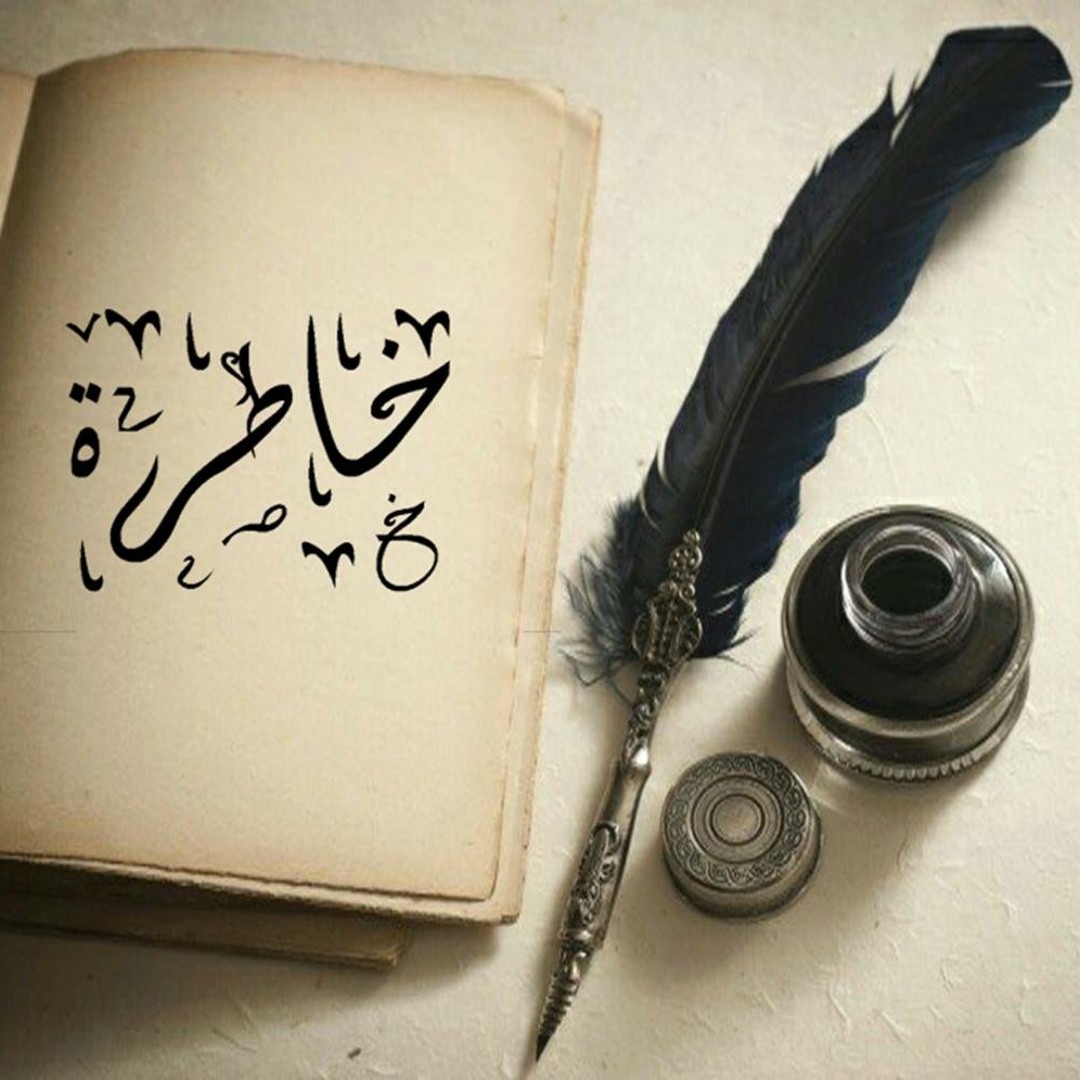 خاطرة